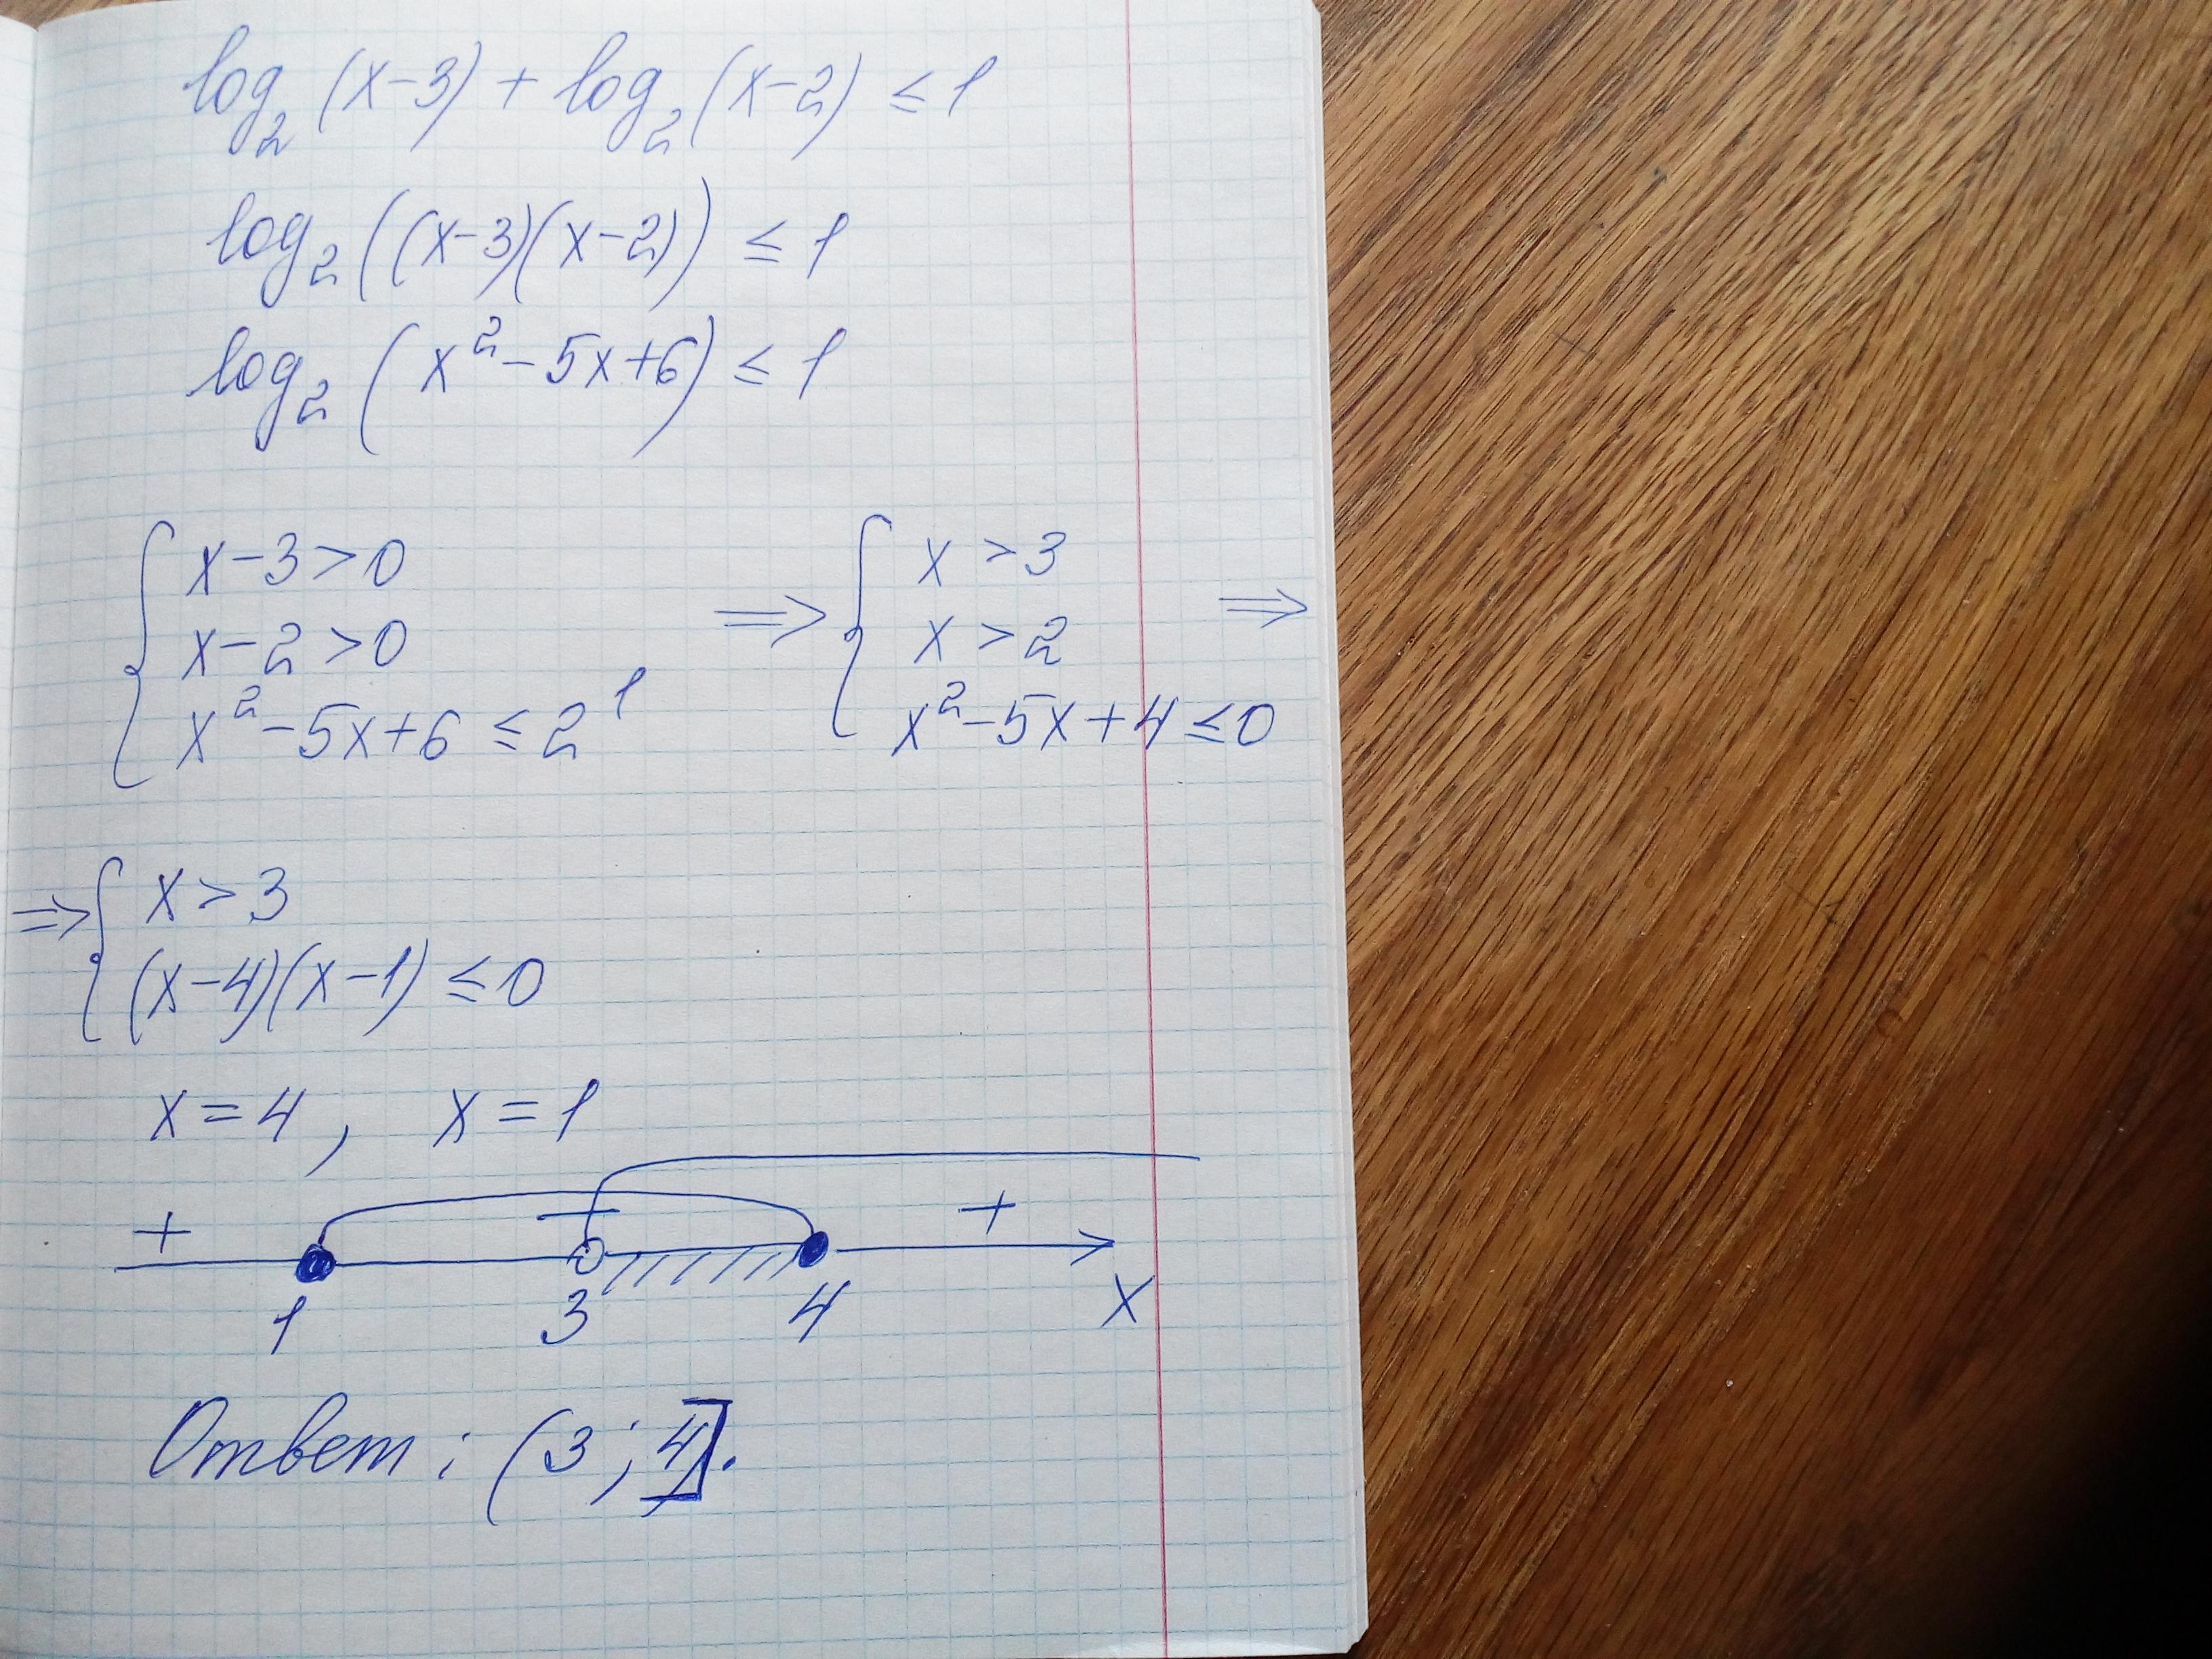 log₂(x-3) + log₂(x-2) ≤ 1
log₂((x-3)(x-2)) ≤ 1
log₂(x²-5x+6) ≤ 1
{ x-3>0 ⇒ { x>3 ⇒
x-2>0 x>2
x²-5x+6 ≤ 2¹ x²-5x+4 ≤ 0
⇒ { x>3
(x-4)(x-1) ≤ 0
x=4, x=1
+ − +
1 3 4 x
Ответ: (3; 4].